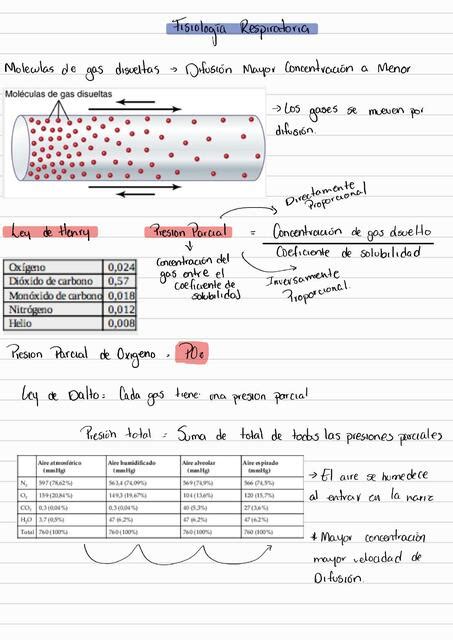 Fisiología Respiratoria
Moleculas de gas disueltas → Difusión Mayor Concentración a Menor
Moléculas de gas disueltas
→ Los gases se mueven por
difusión.
Directamente
Proporcional
Ley de Henry
Presion Parcial = Concentración de gas disuelto
Coeficiente de solubilidad
Concentración del
gas entre el
coeficiente de
solubilidad
Inversamente
Proporcional.
Oxígeno 0,024
Dióxido de carbono 0,57
Monóxido de carbono 0,018
Nitrógeno 0,012
Helio 0,008
Presion Parcial de Oxigeno = PO₂
Ley de Dalto= Cada gas tiene una presion parcial
Presión total = Suma de total de todas las presiones parciales
Aire atmosférico (mmHg) Aire humidificado (mmHg) Aire alveolar (mmHg) Aire espirado (mmHg)
N₂ 597 (78,62%) 563,4 (74,09%) 569 (74,9%) 566 (74,5%)
O₂ 159 (20,84%) 149,3 (19,67%) 104 (13,6%) 120 (15,7%)
CO₂ 0,3 (0,04%) 0,3 (0,04%) 40 (5,3%) 27 (3,6%)
H₂O 3,7 (0,5%) 47 (6,2%) 47 (6,2%) 47 (6,2%)
Total 760 (100%) 760 (100%) 760 (100%) 760 (100%)
→ El aire se humedece
al entrar en la nariz
* Mayor concentración
mayor velocidad de
Difusión.